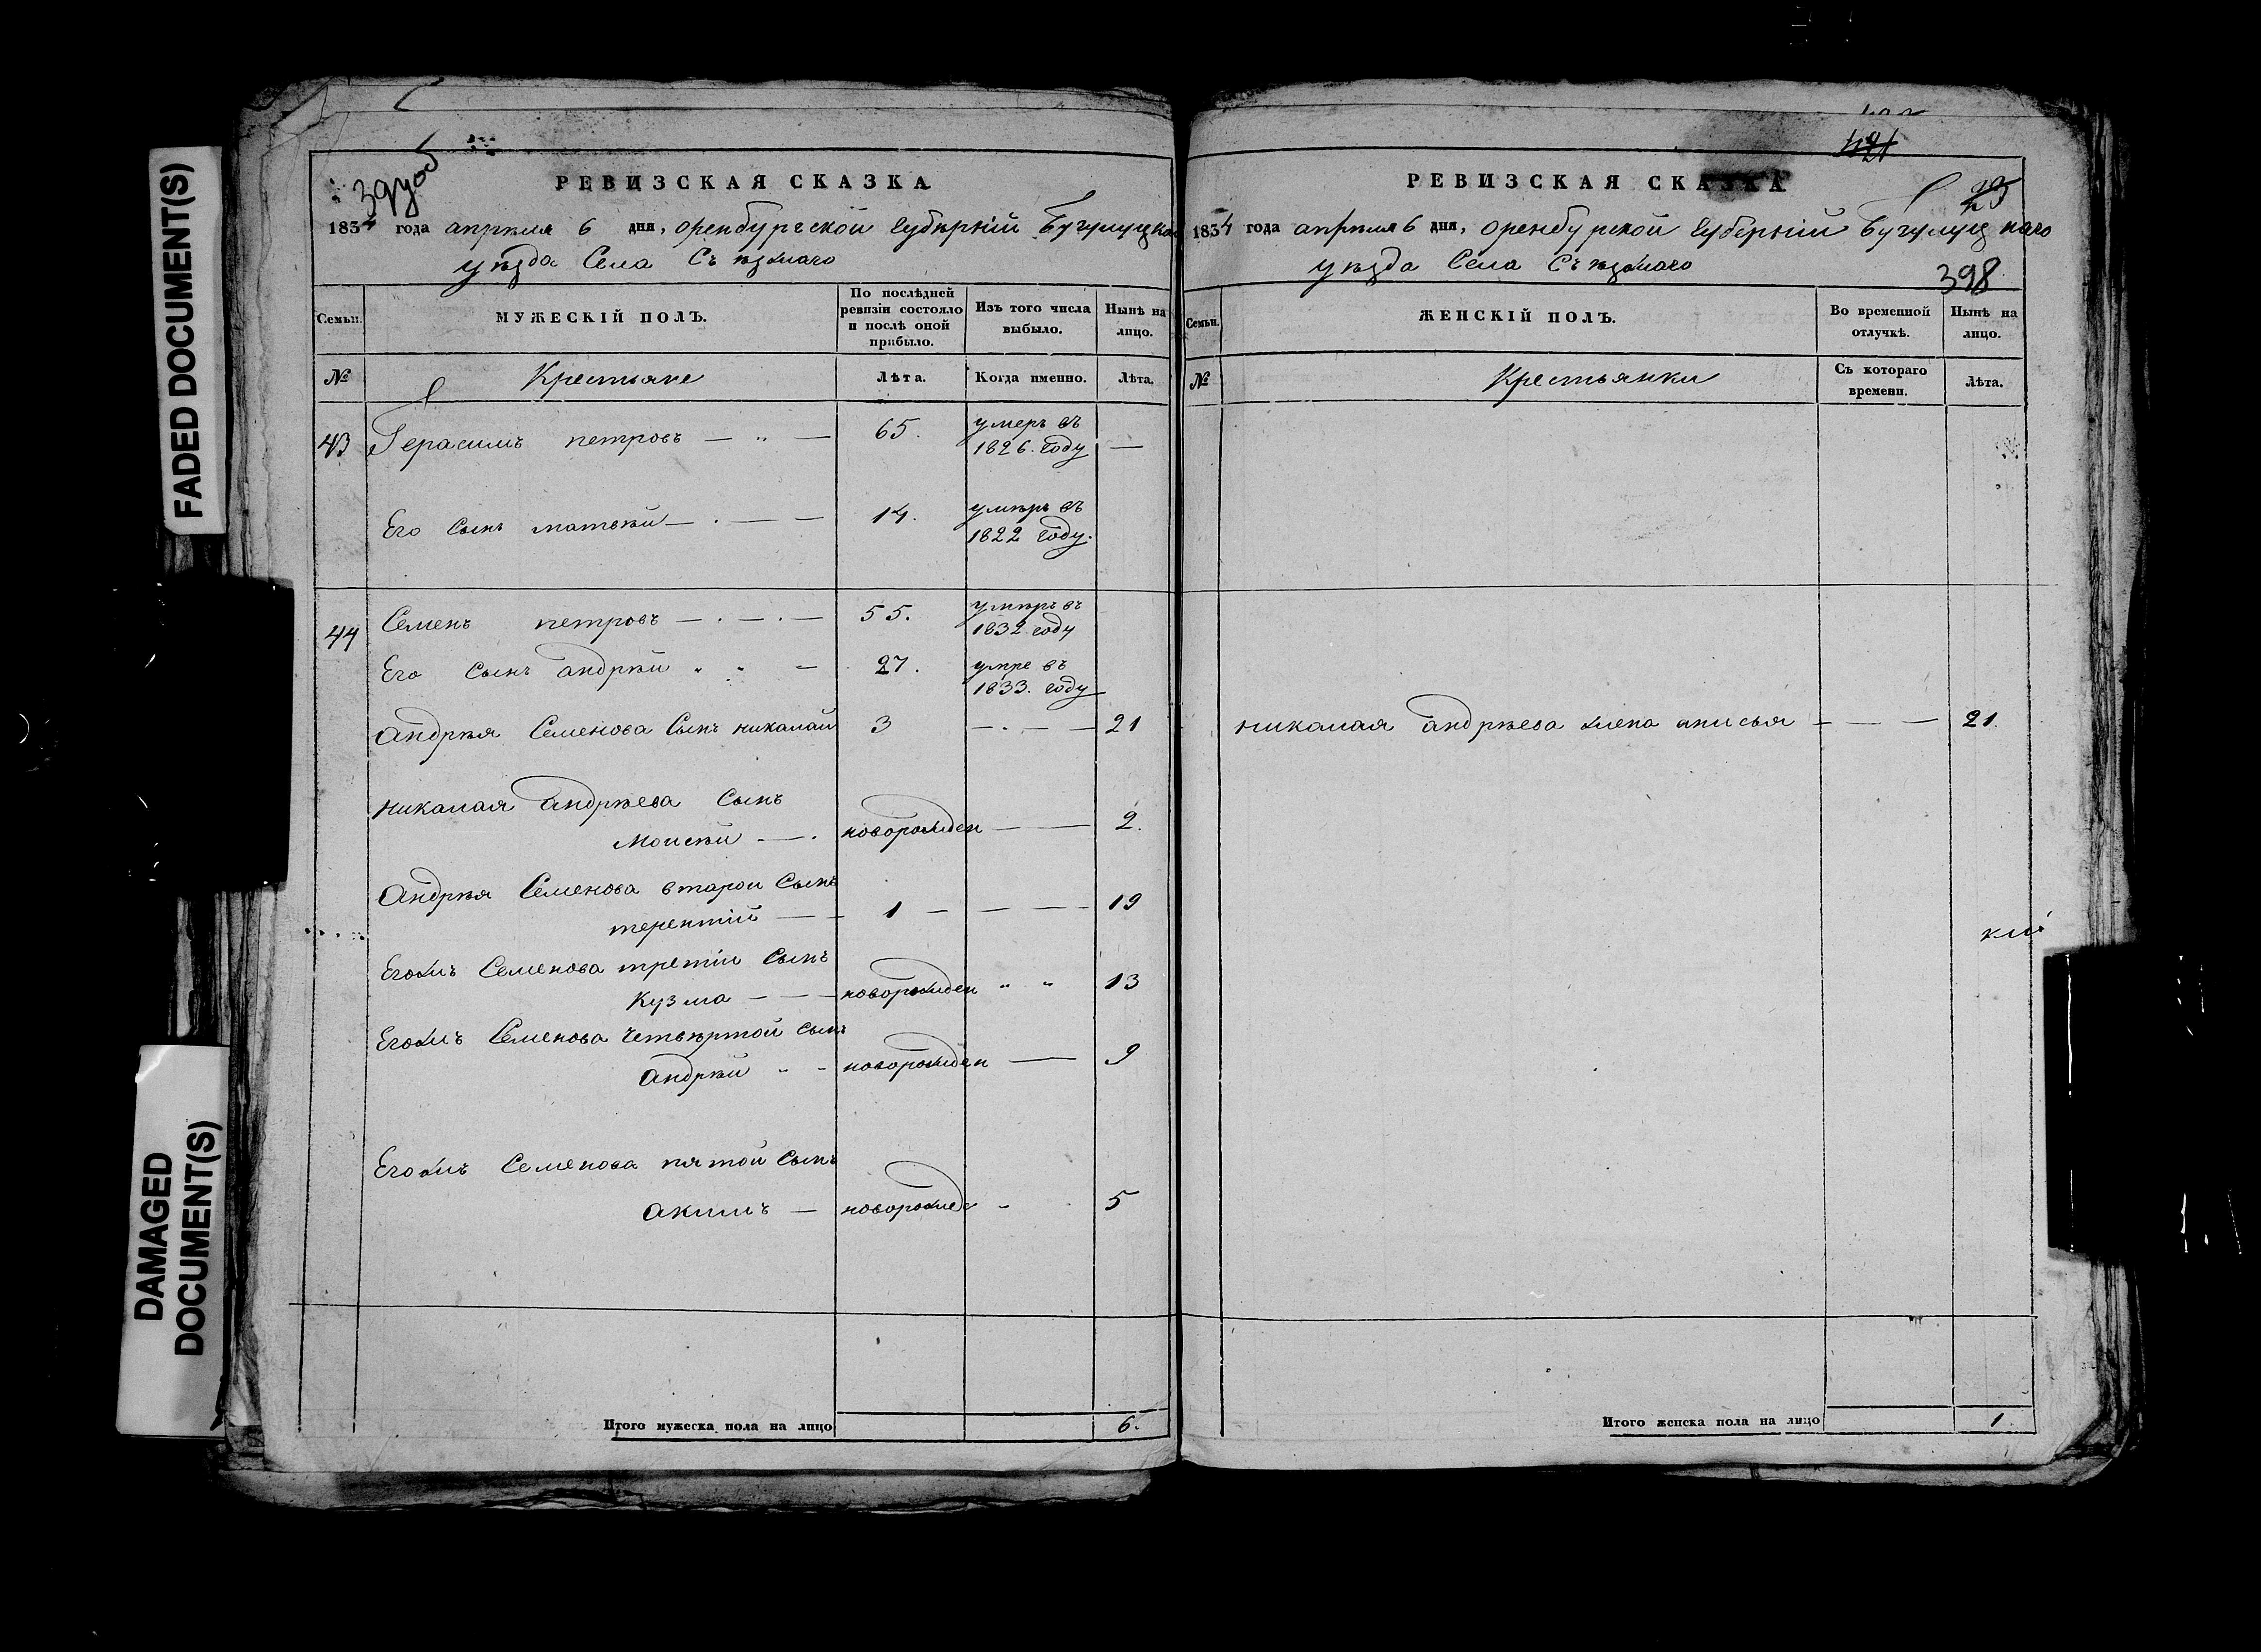 FADED DOCUMENT(S)
DAMAGED
DOCUMENT(S)
РЕВИЗСКАЯ СКАЗКА
1834 года апрѣля 6 дня, оренбургской губѣрнiй Бугулуцкаго
уѣзда Села Съѣзжаго
Семьи.
МУЖЕСКIЙ ПОЛЪ.
По послѣдней
ревизiи состояло
и послѣ оной
прибыло.
Изъ того числа
выбыло.
Нынѣ на
лицо.
№
Крестьяне
Лѣта.
Когда именно.
Лѣта.
43 Герасимъ петровъ — „ — 65. умеръ въ
1826. году —
Его Сынъ матвѣй 14. умѣръ въ
1822 году.
44 Семенъ петровъ 55. умѣръ въ
1832 году
Его Сынъ андрѣй 27. умре въ
1833. году
Андрѣя Семенова Сынъ никалай 3 — 21
никалая андрѣева Сынъ
Моисѣй — новорожден — 2.
Андрѣя Семенова втарои Сынъ
терентiй — 1 — 19
Егожъ Семенова третiи Сынъ
Кузма — новорожден „ „ 13
Егожъ Семенова Четвѣртой сынъ
андрѣй новорожден — 9
Егожъ Семенова пятой Сынъ
акимъ — новорожде 5
Итого мужеска пола на лицо 6.
421
23
РЕВИЗСКАЯ СКАЗКА
1834 года апрѣля 6 дня, оренбурской губернiй Бугулуцкаго
уѣзда Села Съѣзжаго
398
Семьи.
ЖЕНСКIЙ ПОЛЪ.
Во временной
отлучкѣ.
Нынѣ на
лицо.
№
Крестьянки
Съ котораго
времени.
Лѣта.
никалая андрѣева жена анисья — 21.
Итого женска пола на лицо 1